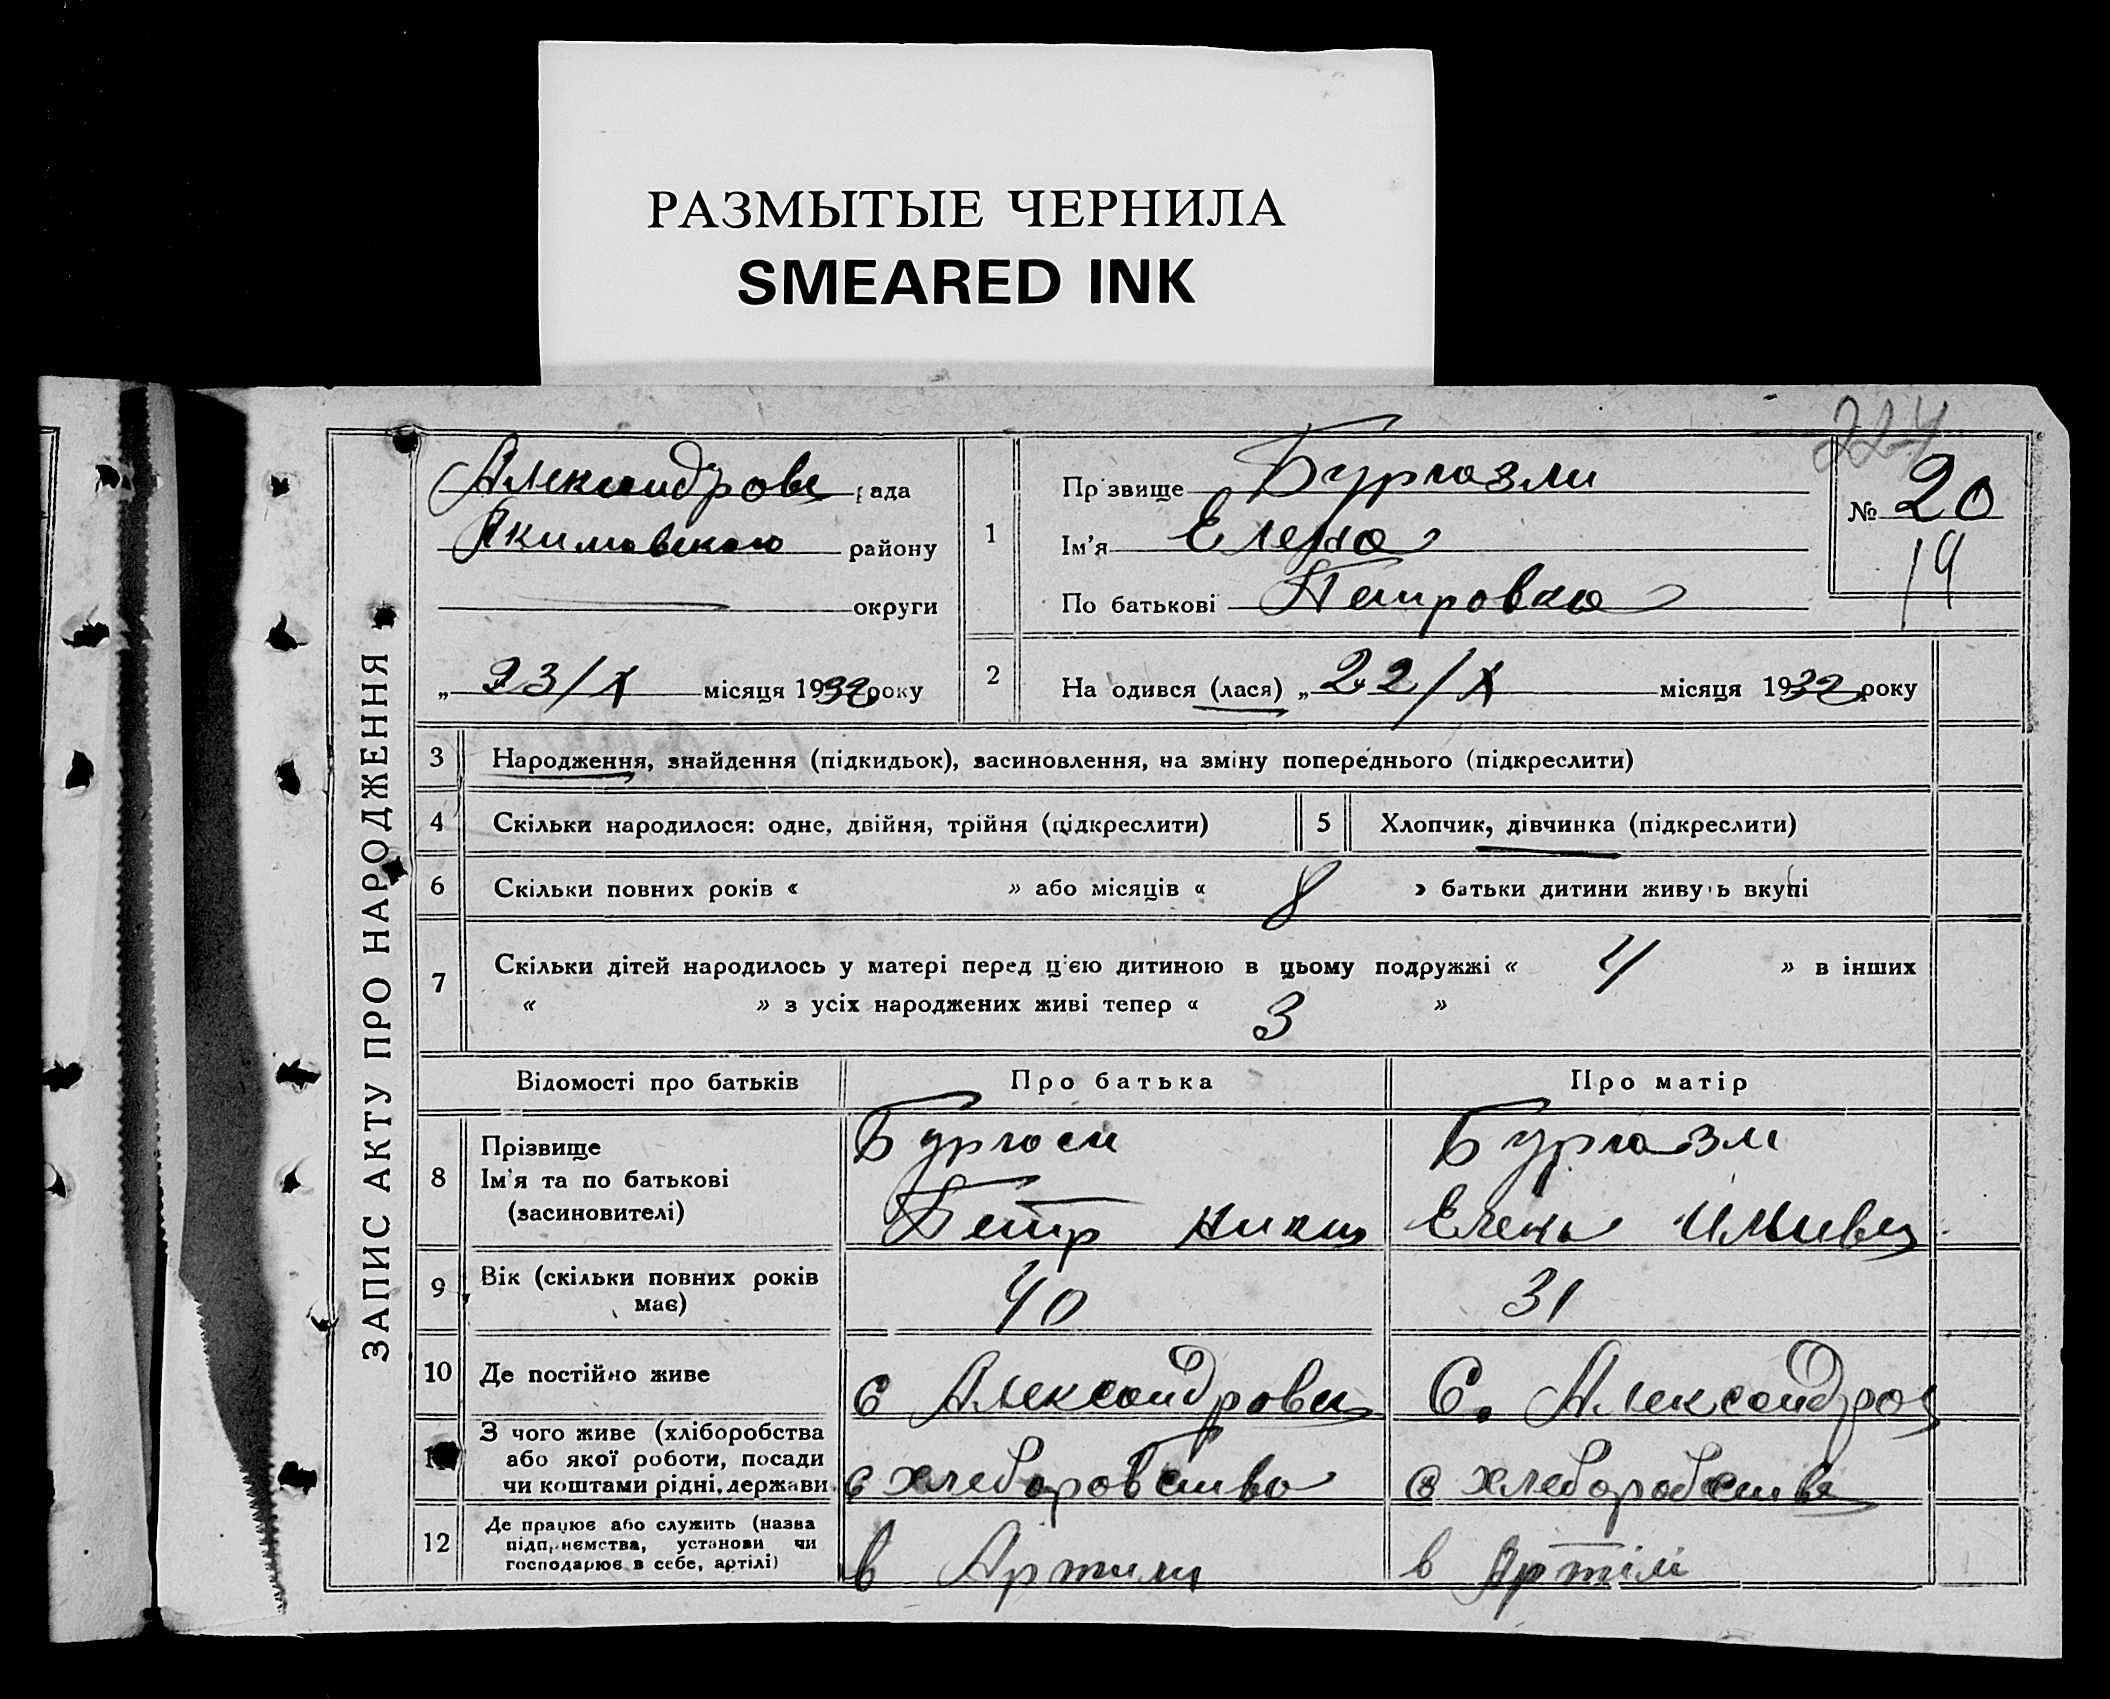 РАЗМЫТЫЕ ЧЕРНИЛА
SMEARED INK
224
ЗАПИС АКТУ ПРО НАРОДЖЕННЯ
Александровс рада
Якимовского району
округи
„ 23/X місяця 1932 року
1
Прізвище Бургазли
Ім'я Елена
По батькові Петровна
№ 20
14
2
На одився (лася) „ 22/X місяця 1932 року
3 Народження, знайдення (підкидьок), засиновлення, на зміну попереднього (підкреслити)
4 Скільки народилося: одне, двійня, трійня (підкреслити)
5 Хлопчик, дівчинка (підкреслити)
6 Скільки повних років « » або місяців « 8 » батьки дитини живуть вкупі
7 Скільки дітей народилось у матері перед цією дитиною в цьому подружжі « 4 » в інших
« » з усіх народжених живі тепер « 3 »
Відомості про батьків Про батька Про матір
8 Прізвище
Ім'я та по батькові
(засиновителі)
Петр
Бургазли
Елена
9 Вік (скільки повних років
має)
40 31
10 Де постійно живе
с Александровка С. Александров
З чого живе (хліборобства
або якої роботи, посади
чи коштами рідні, держави
с хлеборобства с хлеборобства
12 Де працює або служить (назва
підприємства, установи чи
господарює в себе, артілі)
в Артили в Артілі